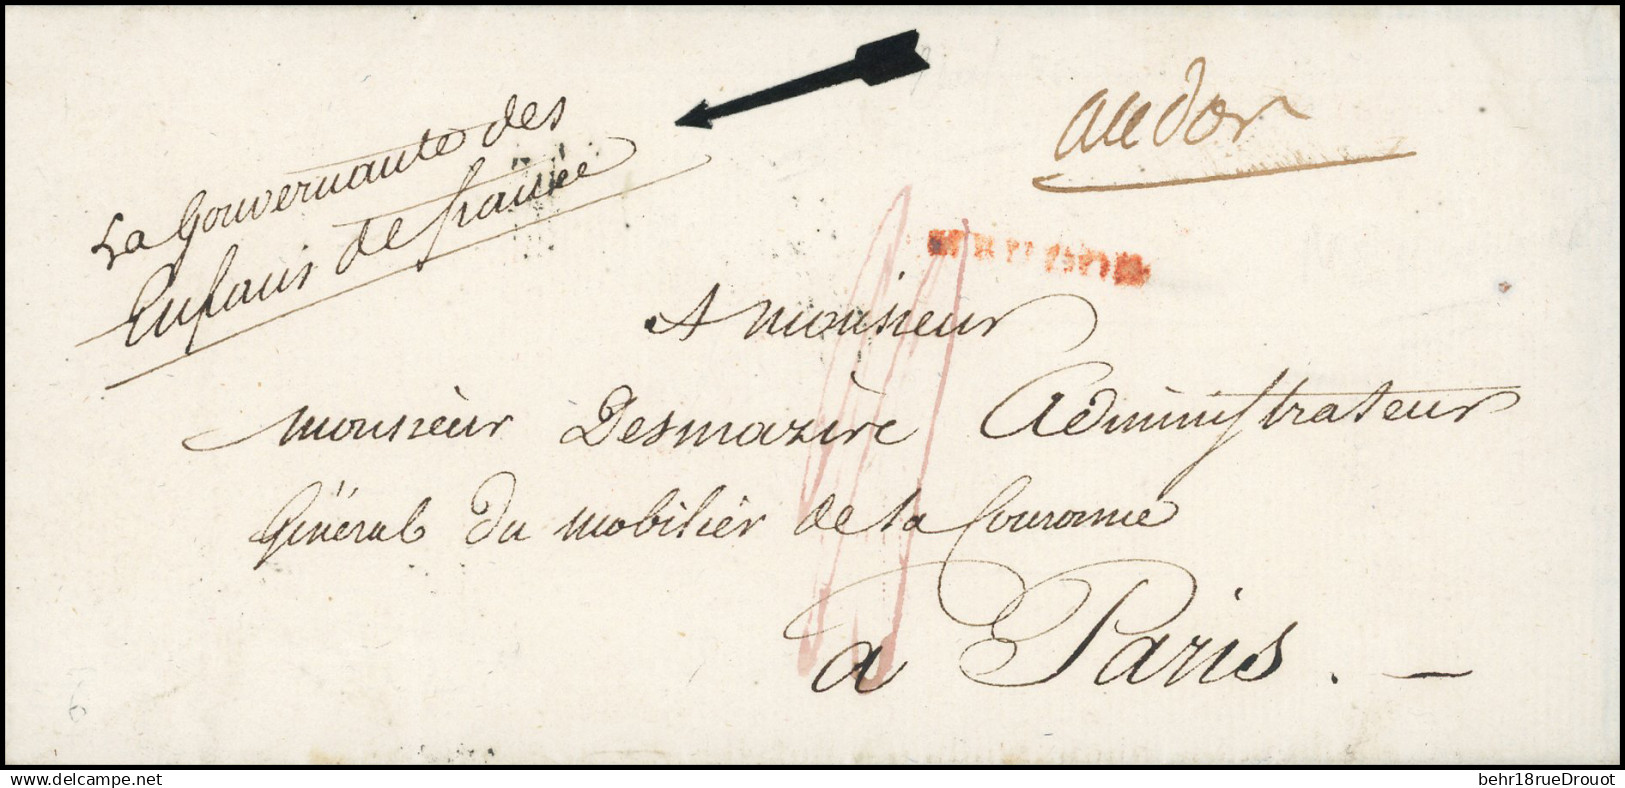 La Gouvernante des
Enfans de france
A monsieur
monsieur Desmazire Administrateur
Général du mobilier de la Couronne
a Paris. —
6
delcampe.net
behr18rueDrouot